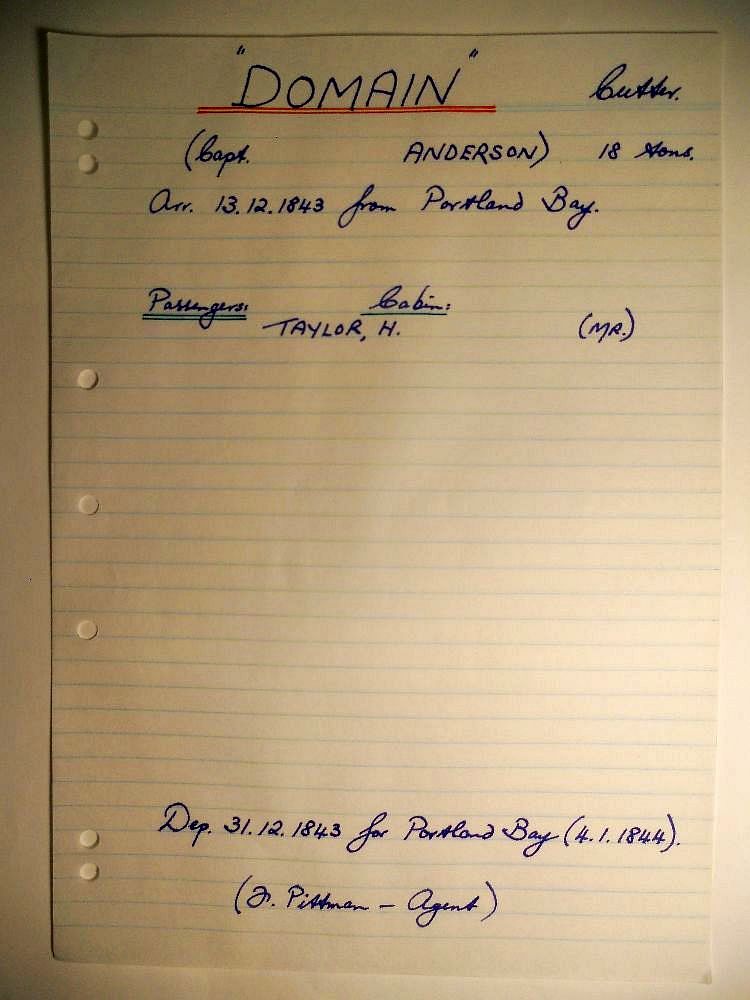 "DOMAIN" Cutter.
(Capt. ANDERSON) 18 tons.
Arr. 13.12.1843 from Portland Bay.
Passengers: Cabin:
TAYLOR, H. (MR.)
Dep. 31.12.1843 for Portland Bay (4.1.1844).
(F. Pittman - Agent)